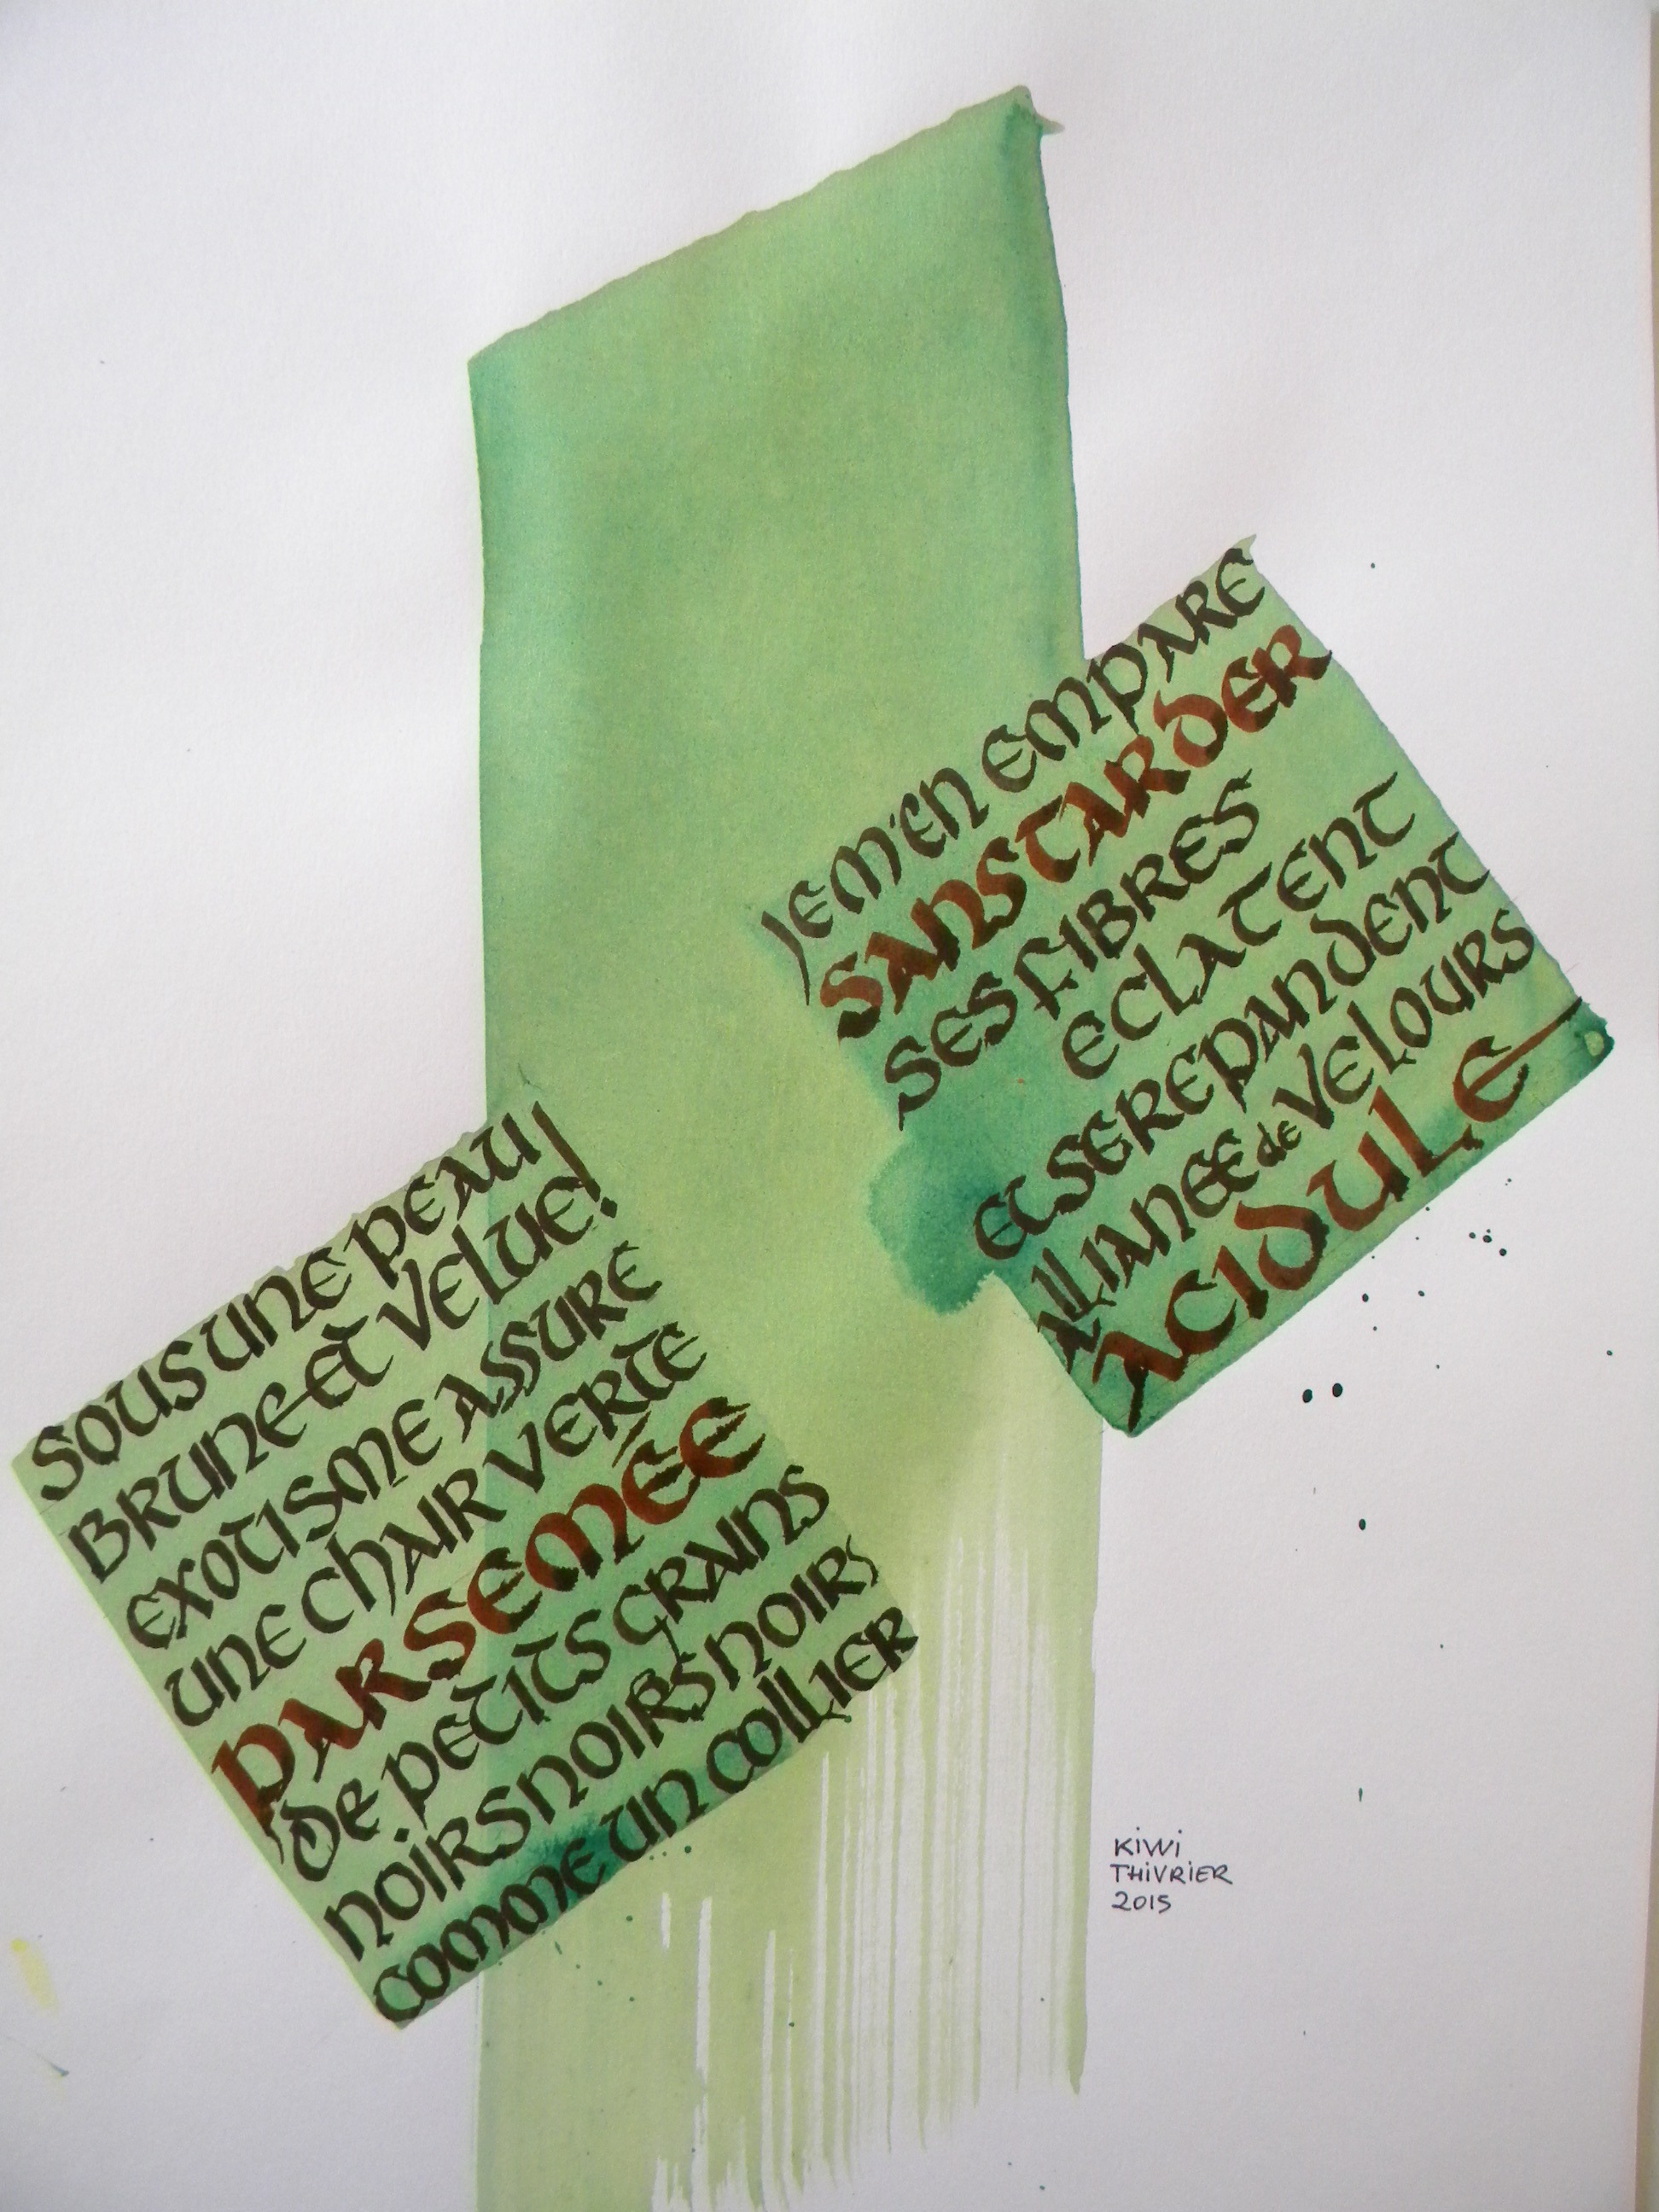 SOUS UNE PEAU
BRUNE ET VELUE!
EXOTISME ASSURE
UNE CHAIR VERTE
PARSEMÉE
de PETITS GRAINS
NOIRS NOIRS NOIRS
COMME UN COLLIER
JE M'EN EMPARE
SANS TARDER
SES FIBRES
ECLATENT
ET SE REPANDENT
ALLIANCE de VELOURS
ACIDULE
KIWI
THIVRIER
2015